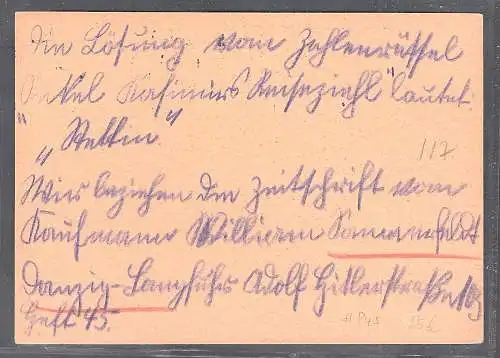 Die Lösung vom Zahlenrätsel
"Onkel Kasimirs Reiseziehl" lautet:
"Stettin"
117
Wir beziehen die Zeitschrift vom
Kaufmann William Sommerfeldt
Danzig-Langfuhr Adolf Hitlerstraße
Heft 45.